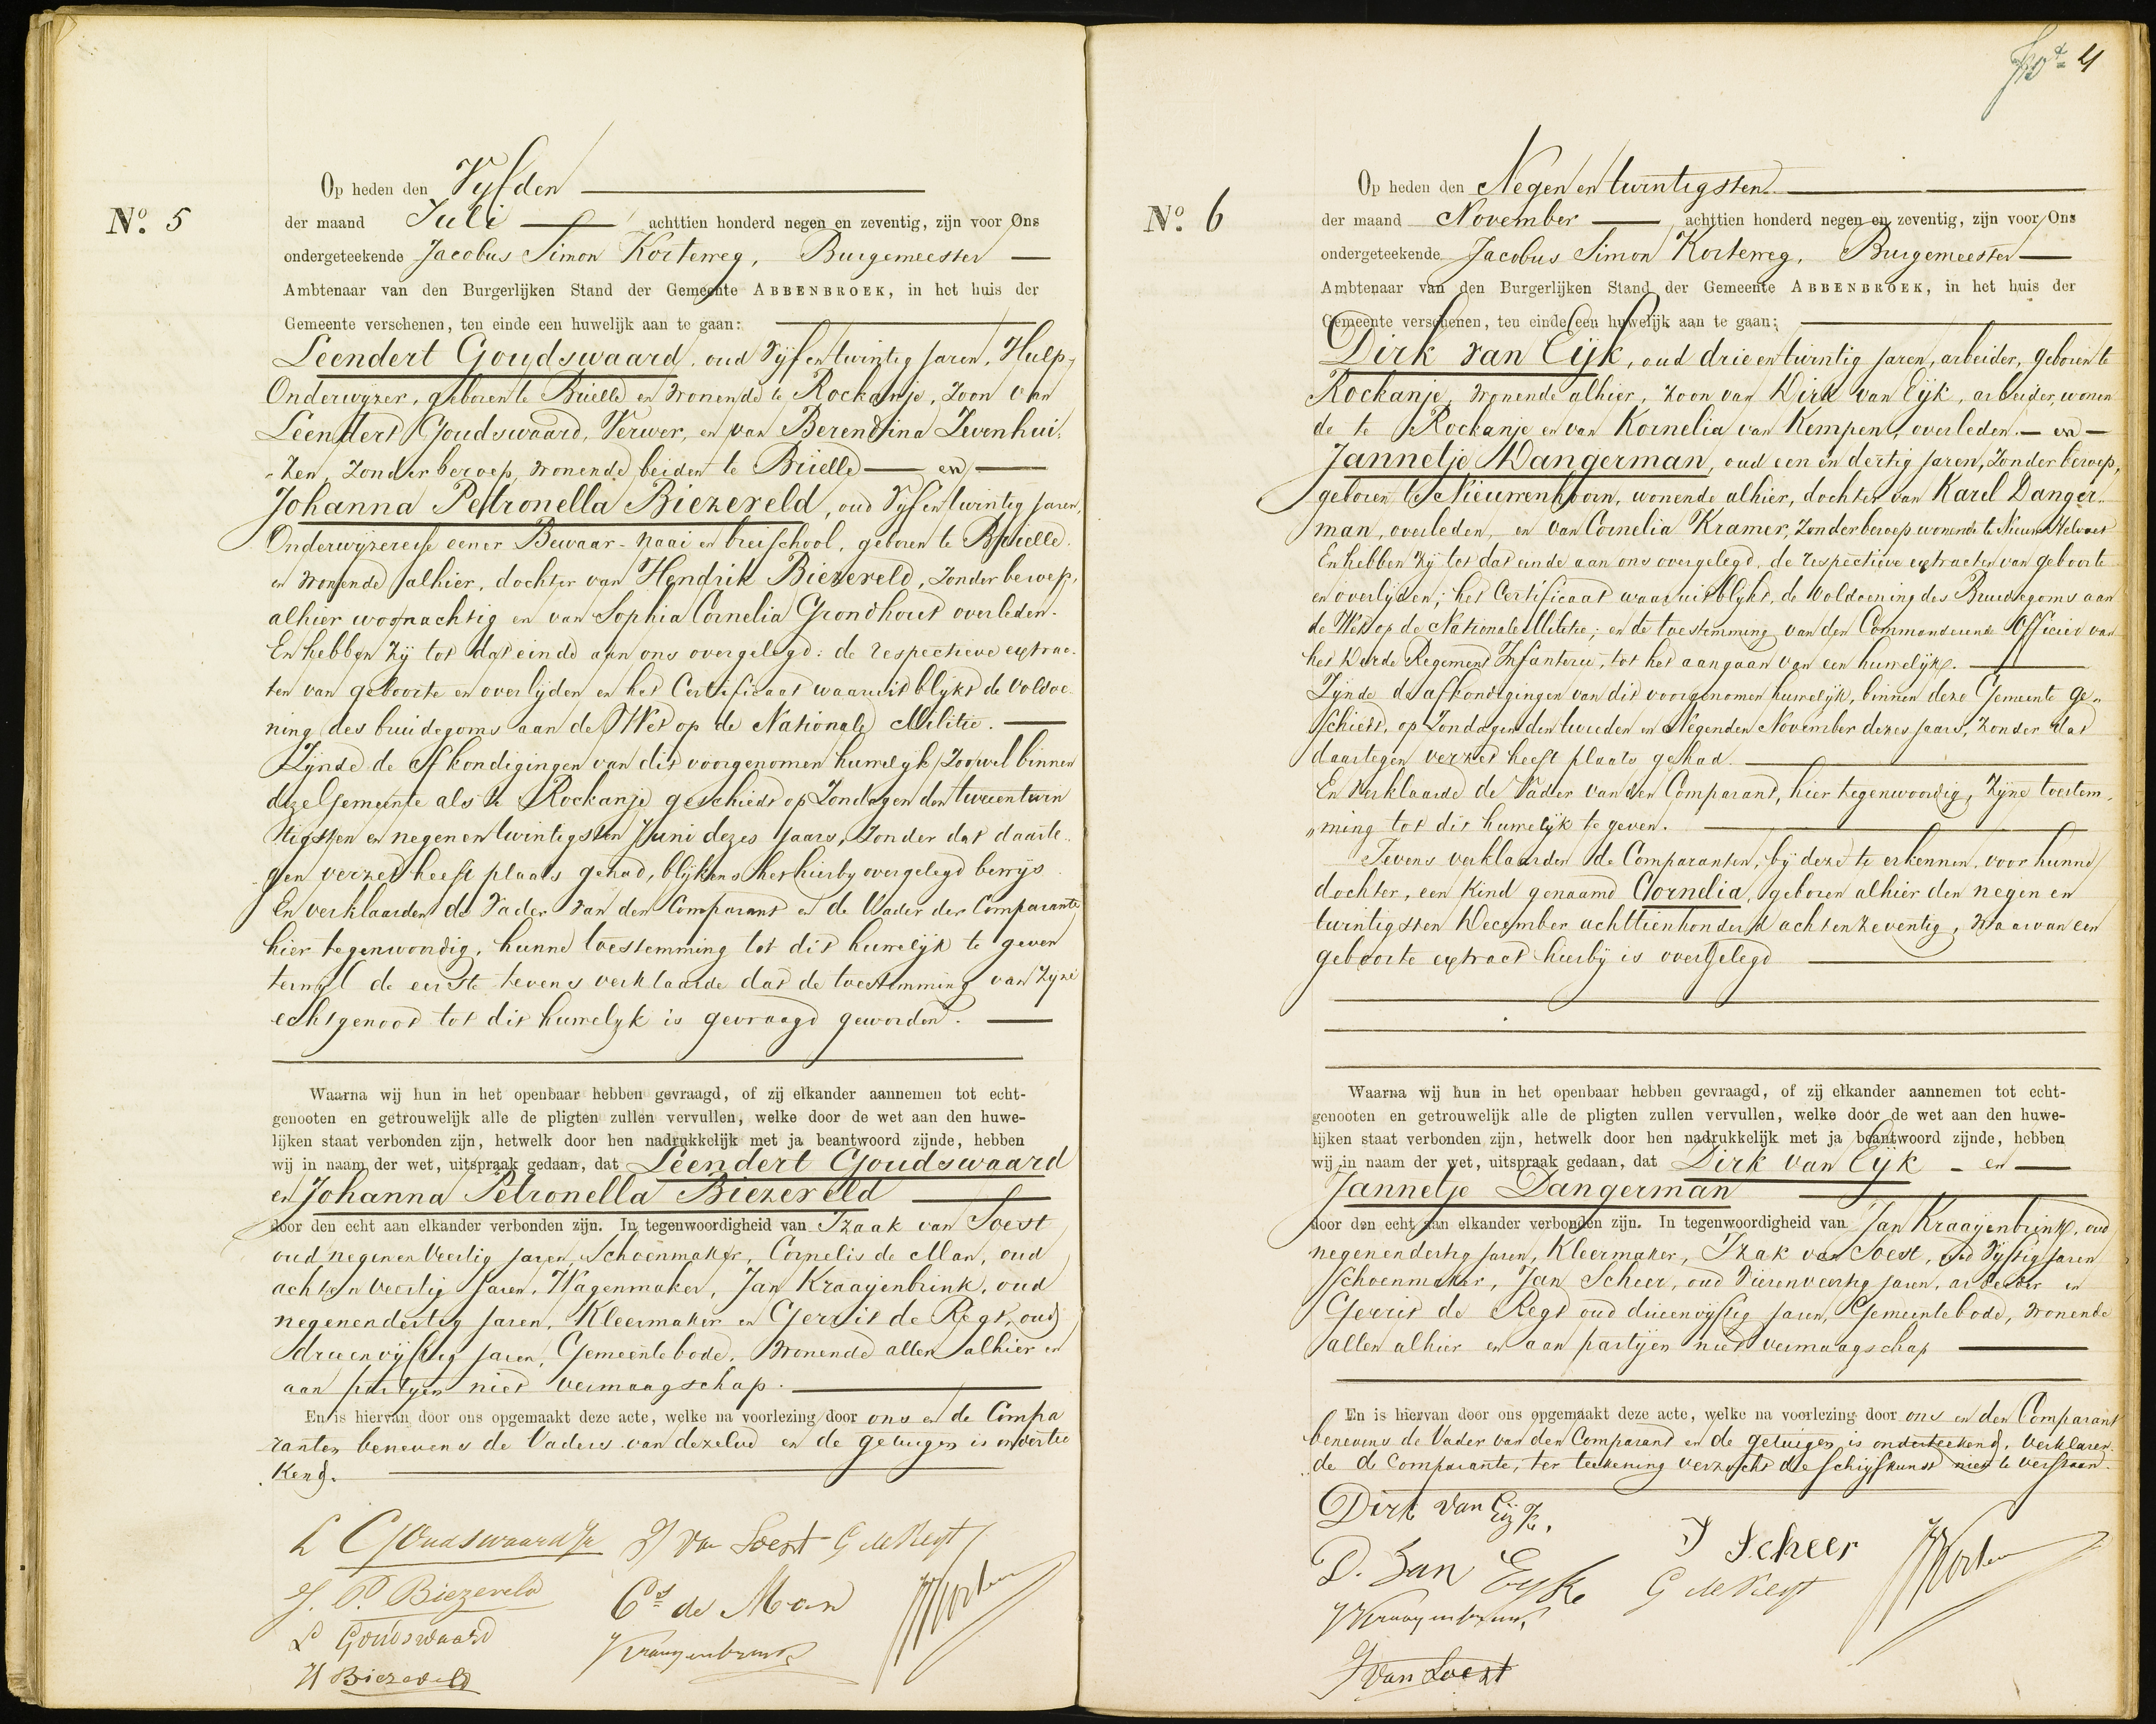 N.º 5
Op heden den Vyfden
der maand Juli achttien honderd negen en zeventig, zijn voor Ons
ondergeteekende Jacobus Simon Korteweg, Burgemeester
Ambtenaar van den Burgerlijken Stand der Gemeente ABBENBROEK, in het huis der
Gemeente verschenen, ten einde een huwelijk aan te gaan:
Leendert Goudswaard, oud Vijfentwintig jaren, Hulp-
Onderwyzer, geboren te Brielle en wonende te Rockanje, zoon van
Leendert Goudswaard, Verwer, en van Berendina Zevenhui-
zen, zonder beroep, wonende beiden te Brielle en
Johanna Petronella Biezeveld, oud Vyfentwintig jaren,
Onderwijzeresse eener Bewaar-naai en breischool, geboren te Brielle
en wonende alhier, dochter van Hendrik Biezeveld, zonder beroep,
alhier woonachtig en van Sophia Cornelia Grondhout overleden.
En hebben zij tot dat einde aan ons overgelegd: de respectieve extrac-
ten van geboorte en overlijden en het Certificaat waaruit blijkt de voldoe-
ning des bruidegoms aan de Wet op de Nationale Militie.
Zijnde de Afkondigingen van dit voorgenomen huwelijk zoowel binnen
deze Gemeente als te Rockanje geschiedt op Zondagen den tweeentwin
tigsten en negenentwintigsten Juni dezes jaars, zonder dat daarte-
gen verzet heeft plaats gehad, blijkens het hierby overgelegd bewys
En verklaarden de Vader van den Comparant en de Vader der Comparante
hier tegenwoordig, hunne toestemming tot dit huwelijk te geven
terwijl de eerste tevens verklaarde dat de toestemming van zyne
echtgenoot tot dit huwelyk is gevraagd geworden.
Waarna wij hun in het openbaar hebben gevraagd, of zij elkander aannemen tot echt-
genooten en getrouwelijk alle de pligten zullen vervullen, welke door de wet aan den huwe-
lijken staat verbonden zijn, hetwelk door hen nadrukkelijk met ja beantwoord zijnde, hebben
wij in naam der wet, uitspraak gedaan, dat Leendert Goudswaard
en Johanna Petronella Biezeveld
door den echt aan elkander verbonden zijn. In tegenwoordigheid van Izaak van Soest
oud negenenveertig jaren, Schoenmaker, Cornelis de Man, oud
achtenveertig jaren, Wagenmaker, Jan Kraayenbrink, oud
negenendertig jaren, Kleermaker en Gerrit de Regt, oud
drieenvijftig jaren, Gemeentebode, wonende allen alhier en
aan partyen niet vermaagschap.
En is hiervan door ons opgemaakt deze acte, welke na voorlezing door ons en de Compa
ranten benevens de Vaders van dezelve en de getuigen is ondertee
kend.
L Goudswaard Jr J van Soest G de Regt
J. P. Biezeveld Cs de Man
L Goudswaard JKraayenbrink
H Biezeveld
4
N.º 6
Op heden den Negenentwintigsten
der maand November achttien honderd negen en zeventig, zijn voor Ons
ondergeteekende Jacobus Simon Korteweg, Burgemeester
Ambtenaar van den Burgerlijken Stand der Gemeente ABBENBROEK, in het huis der
Gemeente verschenen, ten einde een huwelijk aan te gaan:
Dirk van Eijk, oud drieentwintig jaren, arbeider, geboren te
Rockanje, wonende alhier, zoon van Dirk van Eijk, arbeider, wonen
de te Rockanje en van Kornelia van Kempen, overleden. en
Jannetje Dangerman, oud een en dertig jaren, zonder beroep,
geboren te Nieuwenhoorn, wonende alhier, dochter van Karel Danger-
man, overleden, en van Cornelia Kramer, zonder beroep wonende te Nieuw Helvoet
En hebben zij tot dat einde aan ons overgelegd, de respectieve extracten van geboorte
en overlijden; het Certificaat waaruit blijkt, de voldoening des Bruidegoms aan
de Wet op de Nationale Militie; en de toestemming van den Commandeerende Officier van
het Derde Regiment Infanterie, tot het aangaan van een huwelijk.
Zijnde de afkondigingen van dit voorgenomen huwelijk, binnen deze Gemeente ge-
schiedt, op Zondagen den tweeden en Negenden November dezes jaars, zonder dat
daartegen verzet heeft plaats gehad.
En verklaarde de Vader van den Comparant, hier tegenwoordig, Zyne toestem-
ming tot dit huwelijk te geven.
Tevens verklaarden de Comparanten, bij deze te erkennen, voor hunne
dochter, een kind genaamd Cornelia, geboren alhier den negen en
twintigsten December achttienhonderd achtenzeventig, waarvan een
geboorte extract hierbij is overgelegd
Waarna wij hun in het openbaar hebben gevraagd, of zij elkander aannemen tot echt-
genooten en getrouwelijk alle de pligten zullen vervullen, welke door de wet aan den huwe-
lijken staat verbonden zijn, hetwelk door hen nadrukkelijk met ja beantwoord zijnde, hebben
wij in naam der wet, uitspraak gedaan, dat Dirk van Eijk en
Jannetje Dangerman
door den echt aan elkander verbonden zijn. In tegenwoordigheid van Jan Kraayenbrink, oud
negenendertig jaren, Kleermaker, Izak van Soest, oud Vijftig jaren
Schoenmaker, Jan Scheer, oud Vierenveertig jaren, arbeider en
Gerrit de Regt oud drieenvijftig jaren, Gemeentebode, wonende
allen alhier en aan partijen niet vermaagschap
En is hiervan door ons opgemaakt deze acte, welke na voorlezing door ons en den Comparant
benevens de Vader van den Comparant en de getuigen is onderteekend, verklaren
de de Comparante, ter teekening verzocht de schrijfkunst niet te verstaan.
Dirk van Eijk,
D. van Eyk J Scheer
JKraayenbrink G de Regt
J van Soest